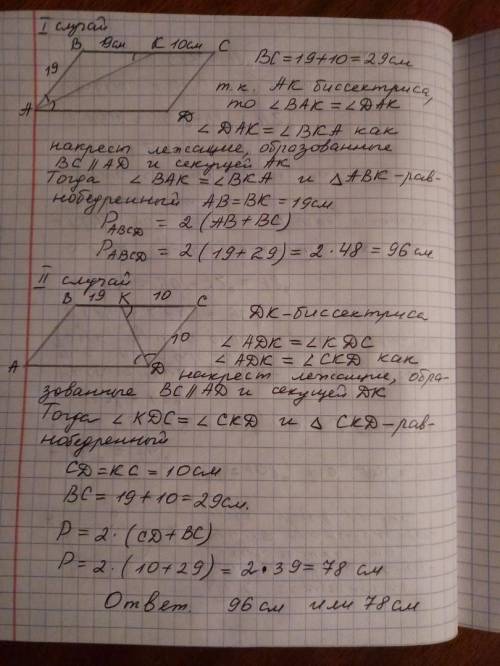 I случай
B 19см K 10см C
BC=19+10=29см
19
т.к. AK биссектриса,
то ∠BAK=∠DAK
A
D
∠DAK=∠BKA как
накрест лежащие, образованные
BC∥AD и секущей AK
Тогда ∠BAK=∠BKA и △ABK-рав-
нобедренный AB=BK=19см
P ABCD = 2(AB+BC)
P ABCD = 2(19+29)=2·48=96см
II случай
B 19 K 10 C
DK-биссектриса
10
∠ADK=∠KDC
A
D
∠ADK=∠CKD как
накрест лежащие, обра-
зованные BC∥AD и секущей DK
Тогда ∠KDC=∠CKD и △CKD-рав-
нобедренный
CD=KC=10см
BC=19+10=29см.
P=2·(CD+BC)
P=2·(10+29)=2·39=78 см
Ответ. 96см или 78см